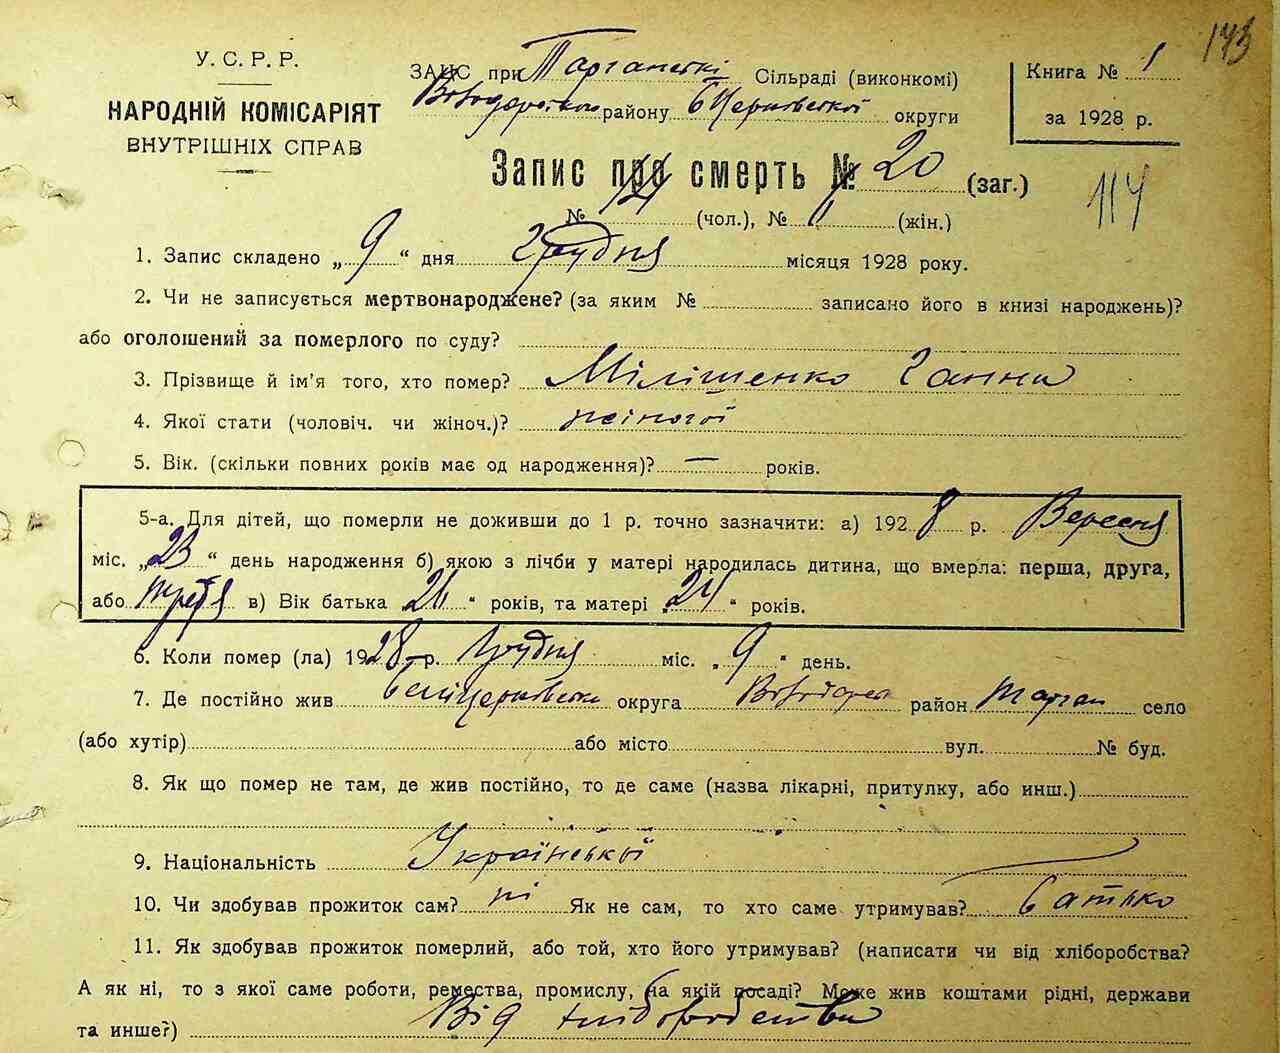 173
У. С. Р. Р.
НАРОДНІЙ КОМІСАРІЯТ
ВНУТРІШНІХ СПРАВ
ЗАГС при Тарганскі Сільраді (виконкомі)
району БЦерківської округи
Книга № 1
за 1928 р.
Запис про смерть № 20 (заг.)
№ (чол.), № (жін.)
114
1. Запис складено „ 9 “ дня Грудня місяця 1928 року.
2. Чи не записується мертвонароджене? (за яким № записано його в книзі народжень)?
або оголошений за померлого по суду?
3. Прізвище й ім'я того, хто помер? Мілішенко Ганна
4. Якої стати (чоловіч. чи жіноч.)? жіночої
5. Вік. (скільки повних років має од народження)? — років.
5-а. Для дітей, що померли не доживши до 1 р. точно зазначити: а) 1928 р. Вересня
міс. „ 23 “ день народження б) якою з лічби у матері народилась дитина, що вмерла: перша, друга,
або третя в) Вік батька 26 “ років, та матері „ 24 “ років.
6. Коли помер (ла) 1928 р. Грудня міс. „ 9 “ день.
7. Де постійно жив Білоцерківська округа Володарськ район Тарган село
(або хутір) або місто вул. № буд.
8. Як що помер не там, де жив постійно, то де саме (назва лікарні, притулку, або инш.)
9. Національність Української
10. Чи здобував прожиток сам? ні Як не сам, то хто саме утримував? батько
11. Як здобував прожиток померлий, або той, хто його утримував? (написати чи від хліборобства?
А як ні, то з якої саме роботи, ремества, промислу, на якій посаді? Може жив коштами рідні, держави
та инше?) Від хліборобства